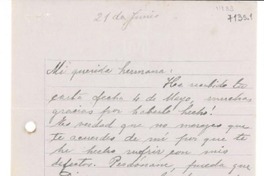 21 de Junio
Mi querida hermana:
He recibido tu
carta fecha 6 de Mayo, muchas
gracias por haberlo hecho!
Es verdad que no merezco que
te acuerdes de mí por que te
he hecho sufrir con mis
defectos. Perdóname, puede que